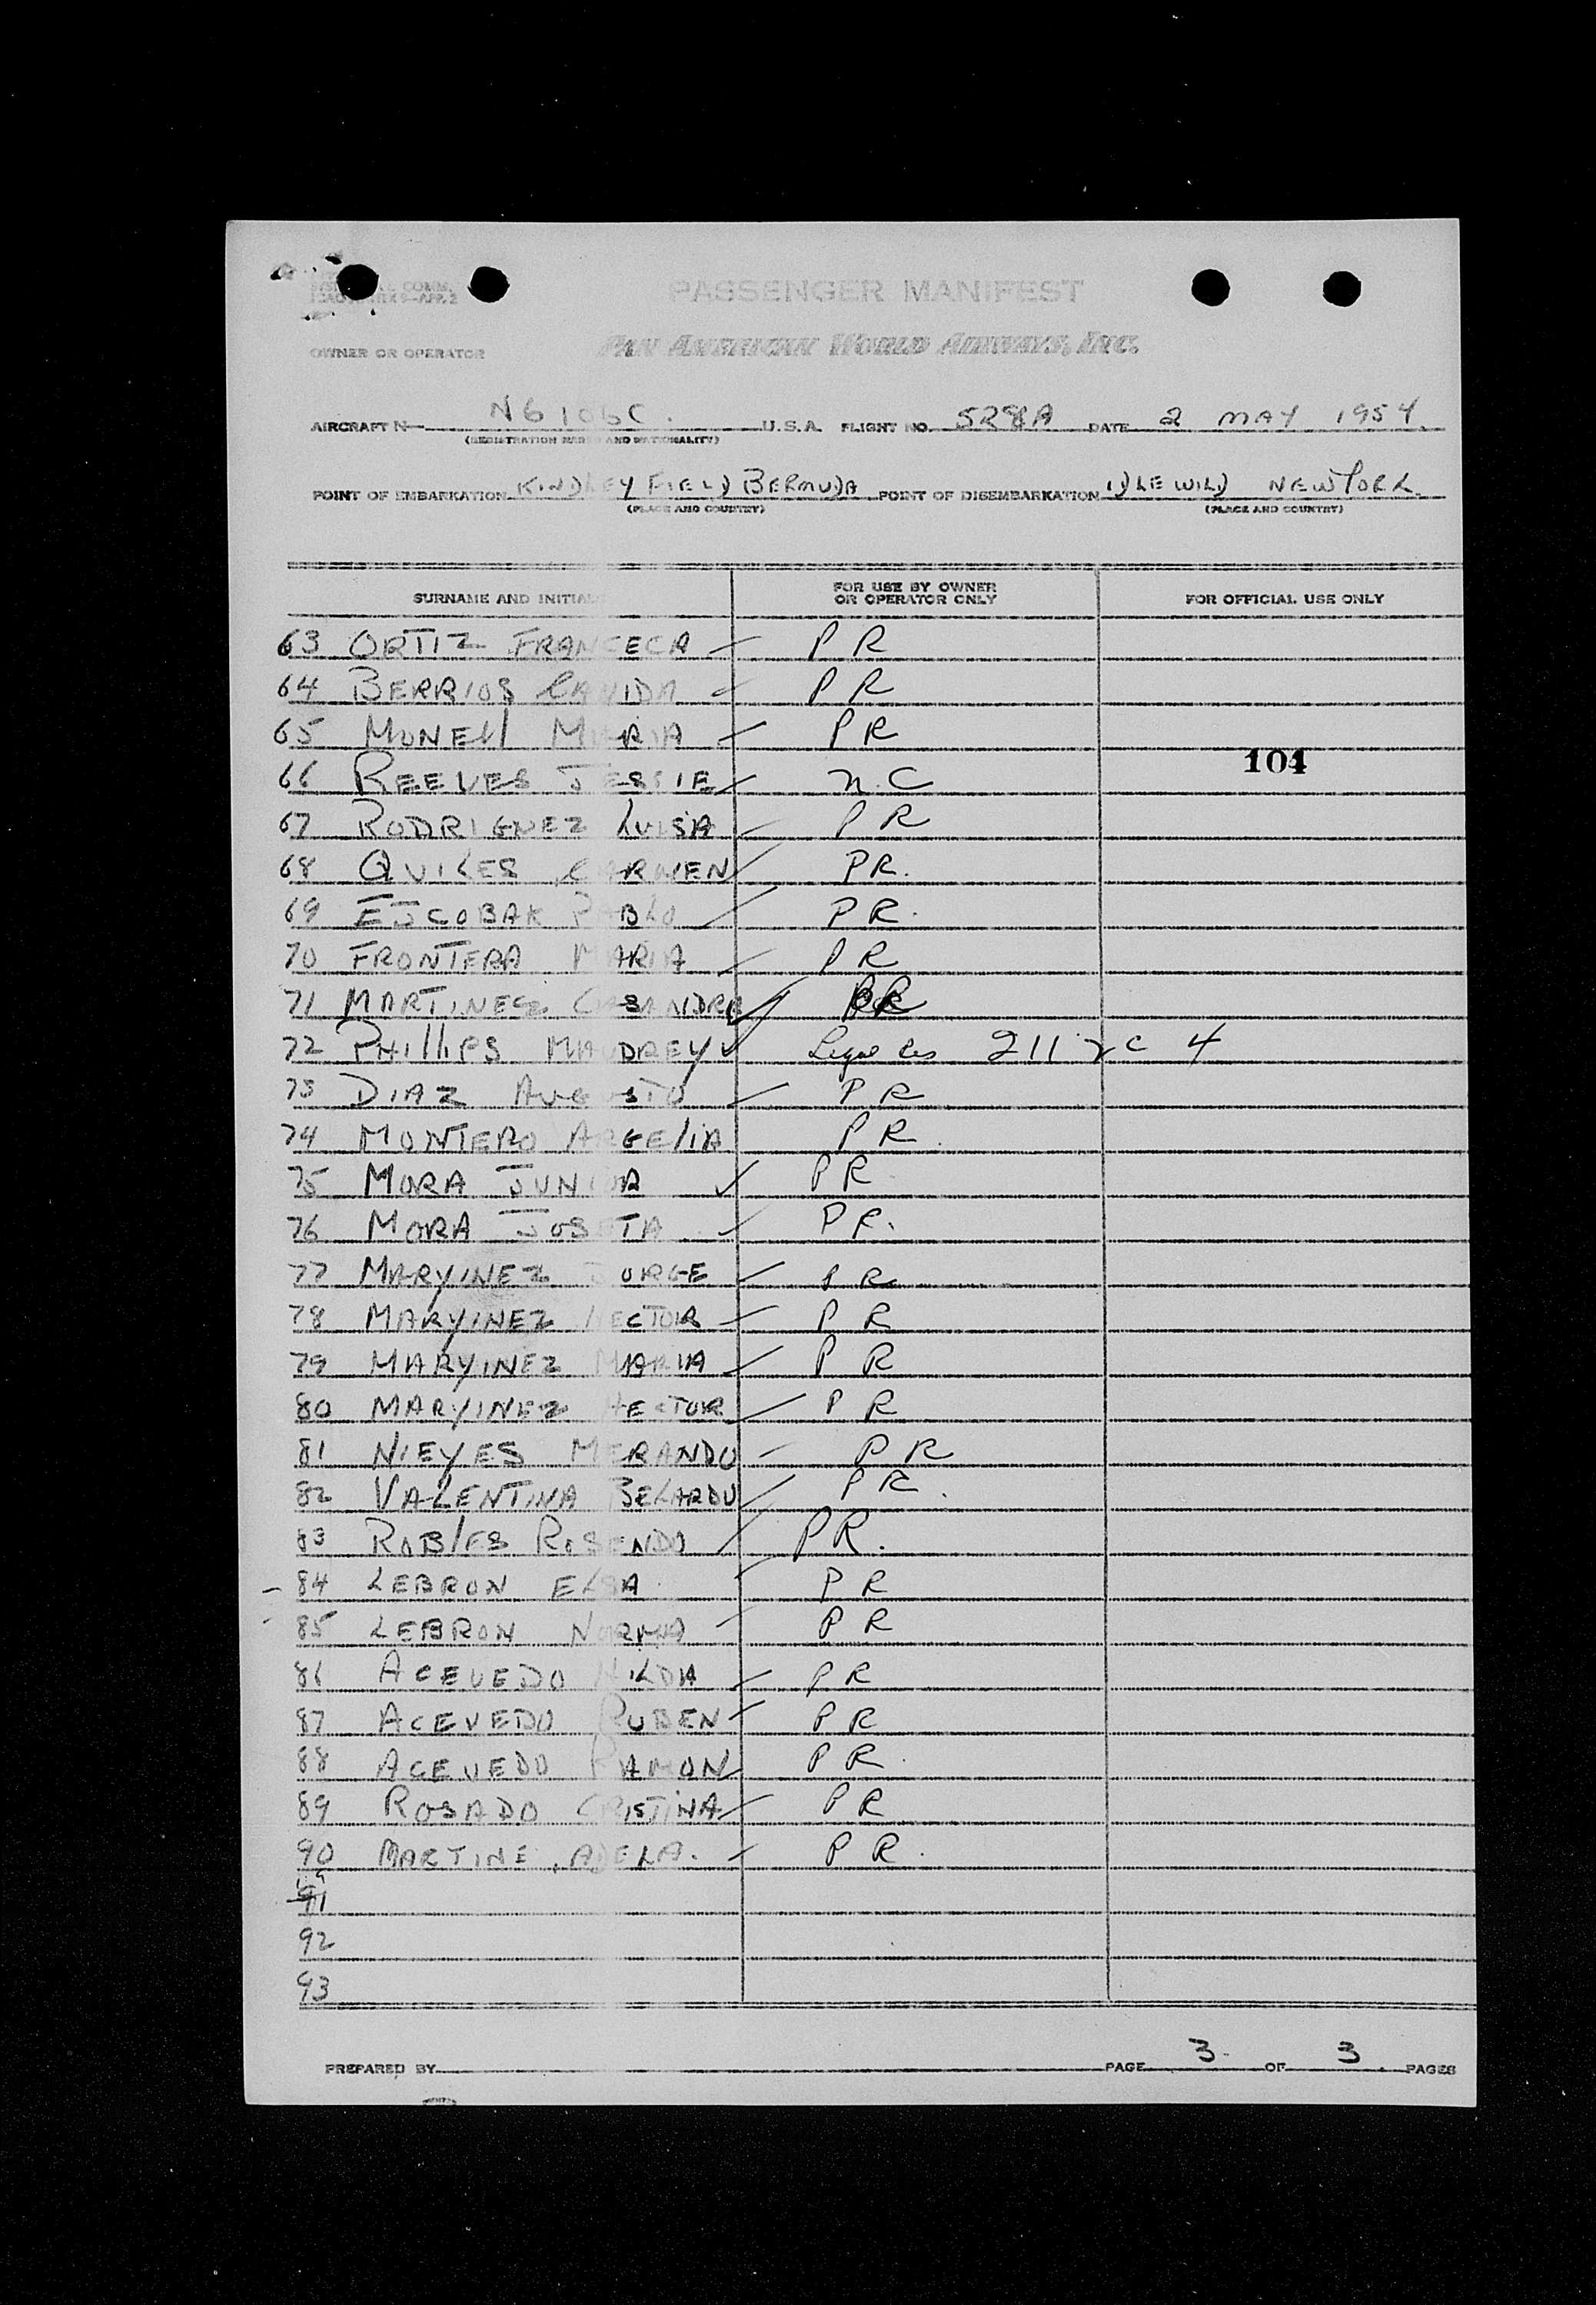 PASSENGER MANIFEST
OWNER OR OPERATOR PAN AMERICAN WORLD AIRWAYS, INC.
AIRCRAFT N N6106C. U.S.A. FLIGHT NO. 528A DATE 2 MAY 1954
(REGISTRATION MARKS AND NATIONALITY)
POINT OF EMBARKATION KINDLEY FIELD BERMUDA POINT OF DISEMBARKATION IDLEWILD NEW YORK.
(PLACE AND COUNTRY) (PLACE AND COUNTRY)
SURNAME AND INITIALS FOR USE BY OWNER OR OPERATOR ONLY FOR OFFICIAL USE ONLY
63 ORTIZ FRANCECA PR
64 BERRIOS CANIDA PR
65 MONELL MARIA PR
104
66 REEVES JESSIE N.C
67 RODRIGNEZ LUISA PR
68 QUILES CARMEN PR.
69 ESCOBAR PABLO PR.
70 FRONTERA MARIA PR
71 MARTINEZ CASANDRA PR
72 PHILLIPS MAUDREY 211 4
73 DIAZ AUGUSTO PR
74 MONTERO ARGELIA PR.
75 MORA JUNIOR PR
76 MORA PR.
77 MARYINEZ JORGE PR
78 MARYINEZ HECTOR PR
79 MARYINEZ MARIA PR
80 MARYINEZ HECTOR PR
81 NIEYES MERANDO PR
82 VALENTINA BELARDO PR.
83 ROBLES ROSENDO PR.
84 LEBRON ELSA PR
85 LEBRON NORMA PR
86 ACEVEDO HILDA PR
87 ACEVEDO RUBEN PR
88 ACEVEDO RAMON PR.
89 ROSADO CRISTINA PR
90 MARTINE, ADELA. PR.
91
92
93
PREPARED BY PAGE 3 OF 3 PAGES